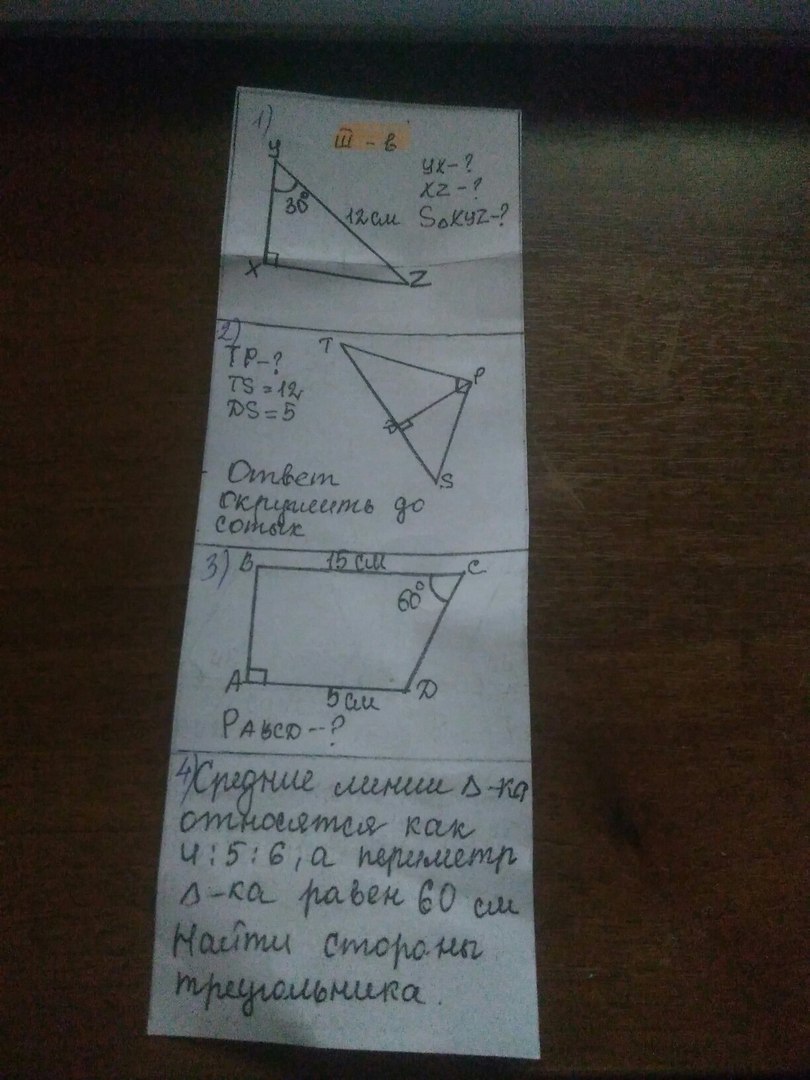 1)
III - в
У
30°
12 см
X
Z
УХ-?
XZ-?
S△XYZ-?
2)
TP-?
TS=12
DS=5
T
P
D
S
Ответ
округлить до
сотых
3)
B
15 см
C
60°
A
5 см
D
PABCD-?
4) Средние линии △-ка
относятся как
4:5:6, а периметр
△-ка равен 60 см
Найти стороны
треугольника.